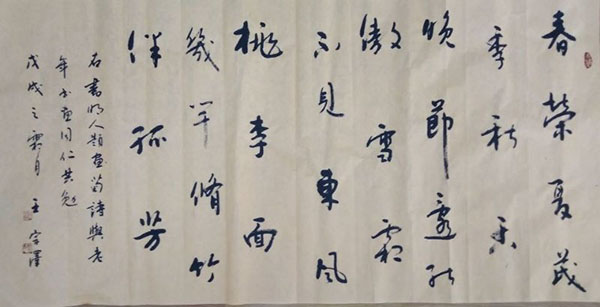 春榮夏茂
季秋香
晚節還能
傲雪霜
不見東風
桃李面
幾竿脩竹
伴孤芳
右書明人題畫菊詩與老
年書畫同仁共勉
戊戌之霜月 王澤